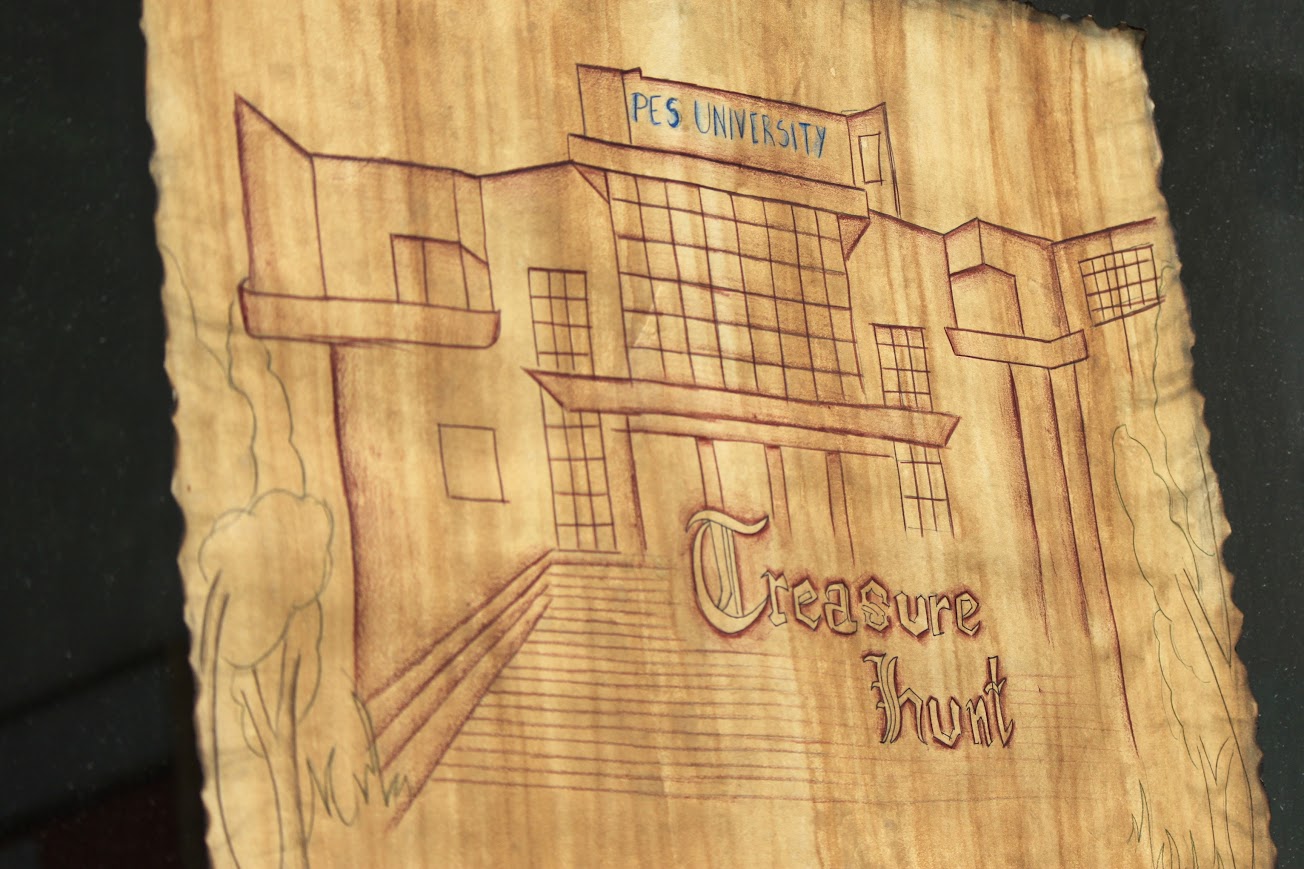 PES UNIVERSITY
Treasure
hunt